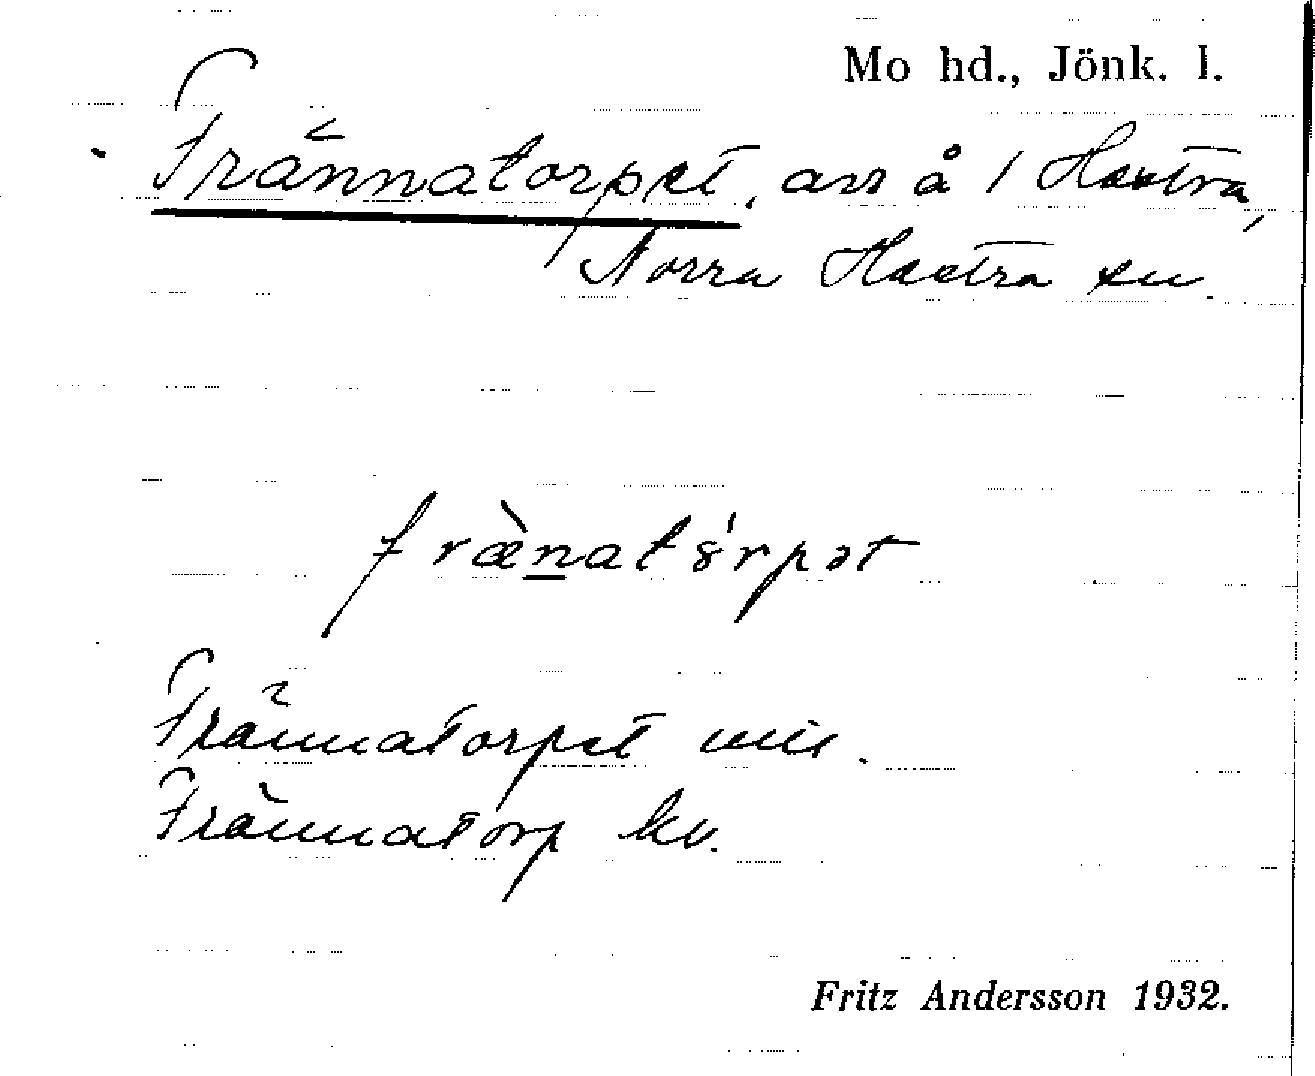 Mo hd., Jönk. l.
Frännatorpet, avs å 1 Haetra,
Norra Haetra sn.
fræ̀natórpət
Frännatorpet mil.
Frännatorp kv.
Fritz Andersson 1932.